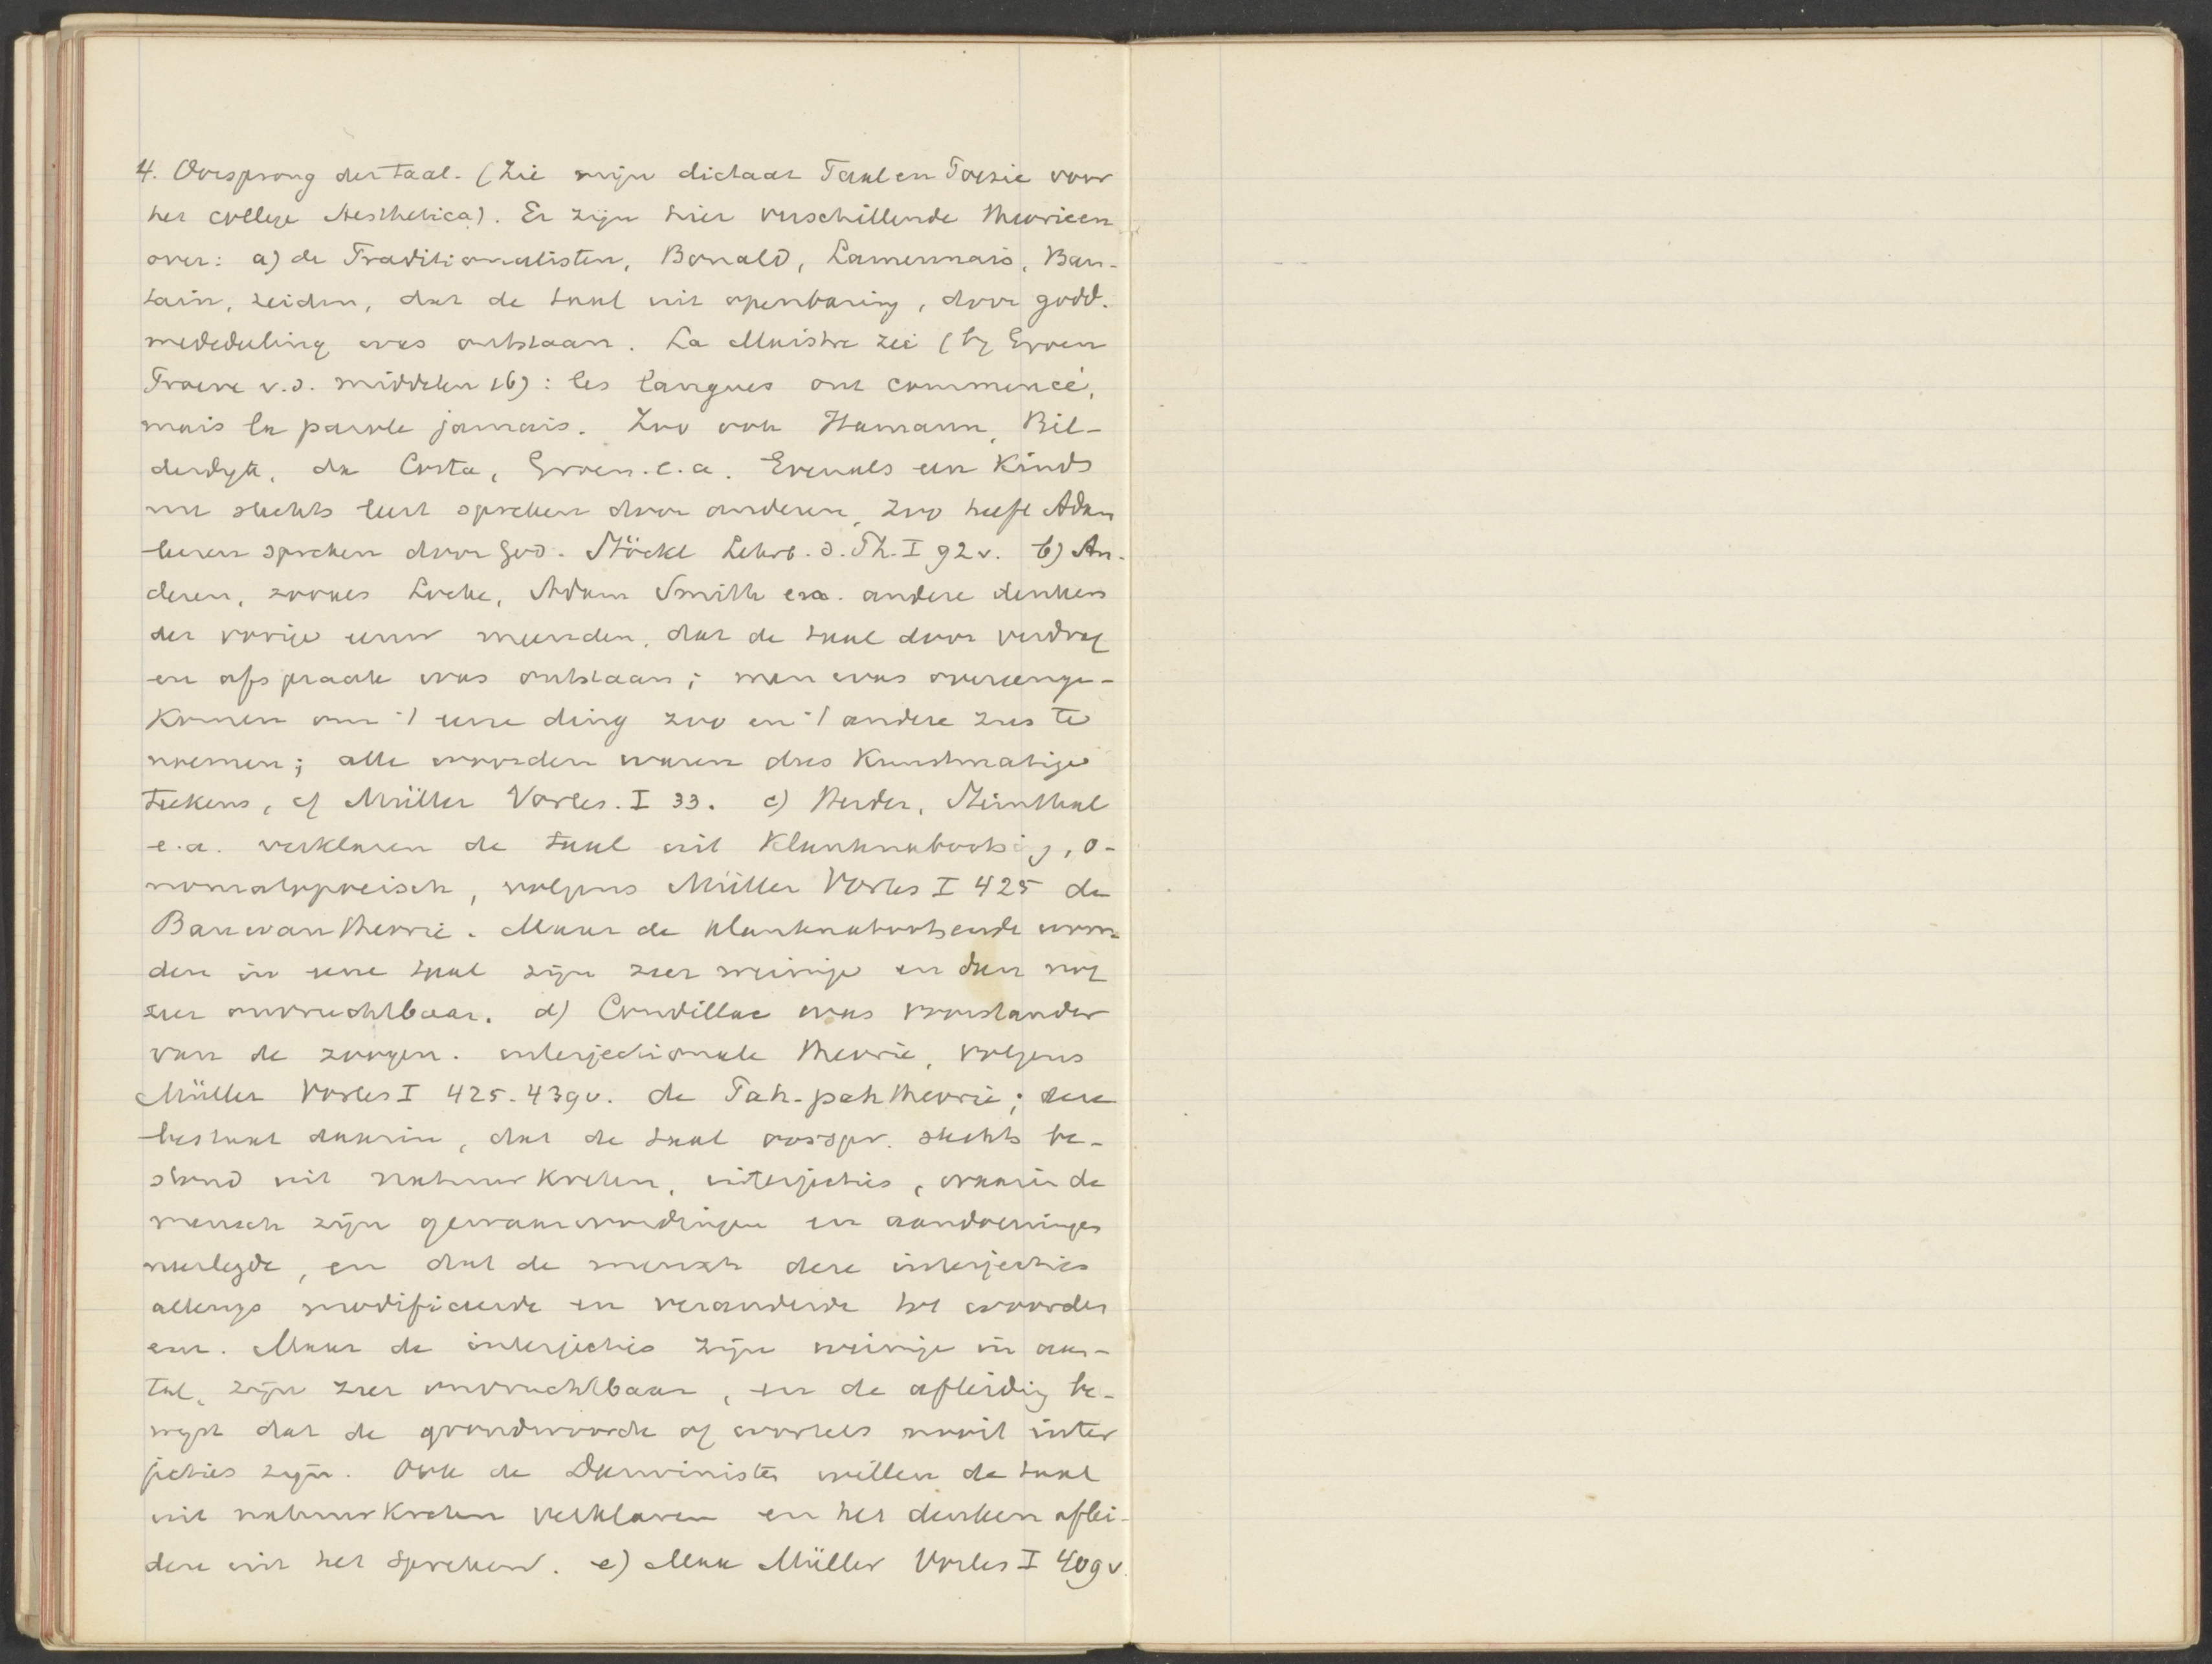 4. Oorsprong der taal. (Zie mijn dictaat Taal en Poezie voor
het college Aesthetica). Er zijn hier verschillende theorieen
over: a) de Traditionalisten, Bonald, Lamennais, Bau-
tain, zeiden, dat de taal uit openbaring, door godd.
mededeeling was ontstaan. La Maistre zei (bij Groen
Proeve v.d. middelen 16): les langues ont commencé,
mais la parole jamais. Zoo ook Hamann, Bil-
derdijk, da Costa, Groen. e.a. Evenals een kind
nu slechts leert spreken door anderen, zoo heeft Adam
leeren spreken door God. Stöckl Lehrb. d. Ph. I 92v. b) An-
deren, zooals Locke, Adam Smith e.a. andere denkers
der vorige eeuw meenden, dat de taal door verdrag
en afspraak was ontstaan; men was overeenge-
komen om 't eene ding zoo en 't andere zus te
noemen; alle woorden waren dus kunstmatige
teekens, cf Müller Vorles. I 33. c) Herder, Steinthal
e.a. verklaren de taal uit klanknabootsing, o-
nomatopoeisch, volgens Müller Vorles I 425 de
Bauwautheorie. Maar de klanknabootsende woor-
den in eene taal zijn zeer weinige en dan nog
zeer onvruchtbaar. d) Condillac was voorstander
van de zoogen. interjectionale theorie, volgens
Müller Vorles I 425. 439v. de Pah-pah theorie; deze
bestaat daarin, dat de taal oorspr. slechts be-
stond uit natuurkreten, interjecties, waarin de
mensch zijn gewaarwordingen en aandoeningen
neerlegde, en dat de mensch deze interjecties
allengs modificeerde en veranderde tot woorden
enz. Maar de interjecties zijn weinige in aan-
tal, zijn zeer onvruchtbaar, en de afleiding be-
wijst dat de grondwoorden of wortels nooit inter
jecties zijn. Ook de Darwinisten willen de taal
uit natuurkreten verklaren en het denken aflei-
den uit het spreken. e) Max Müller Vorles I 409v.